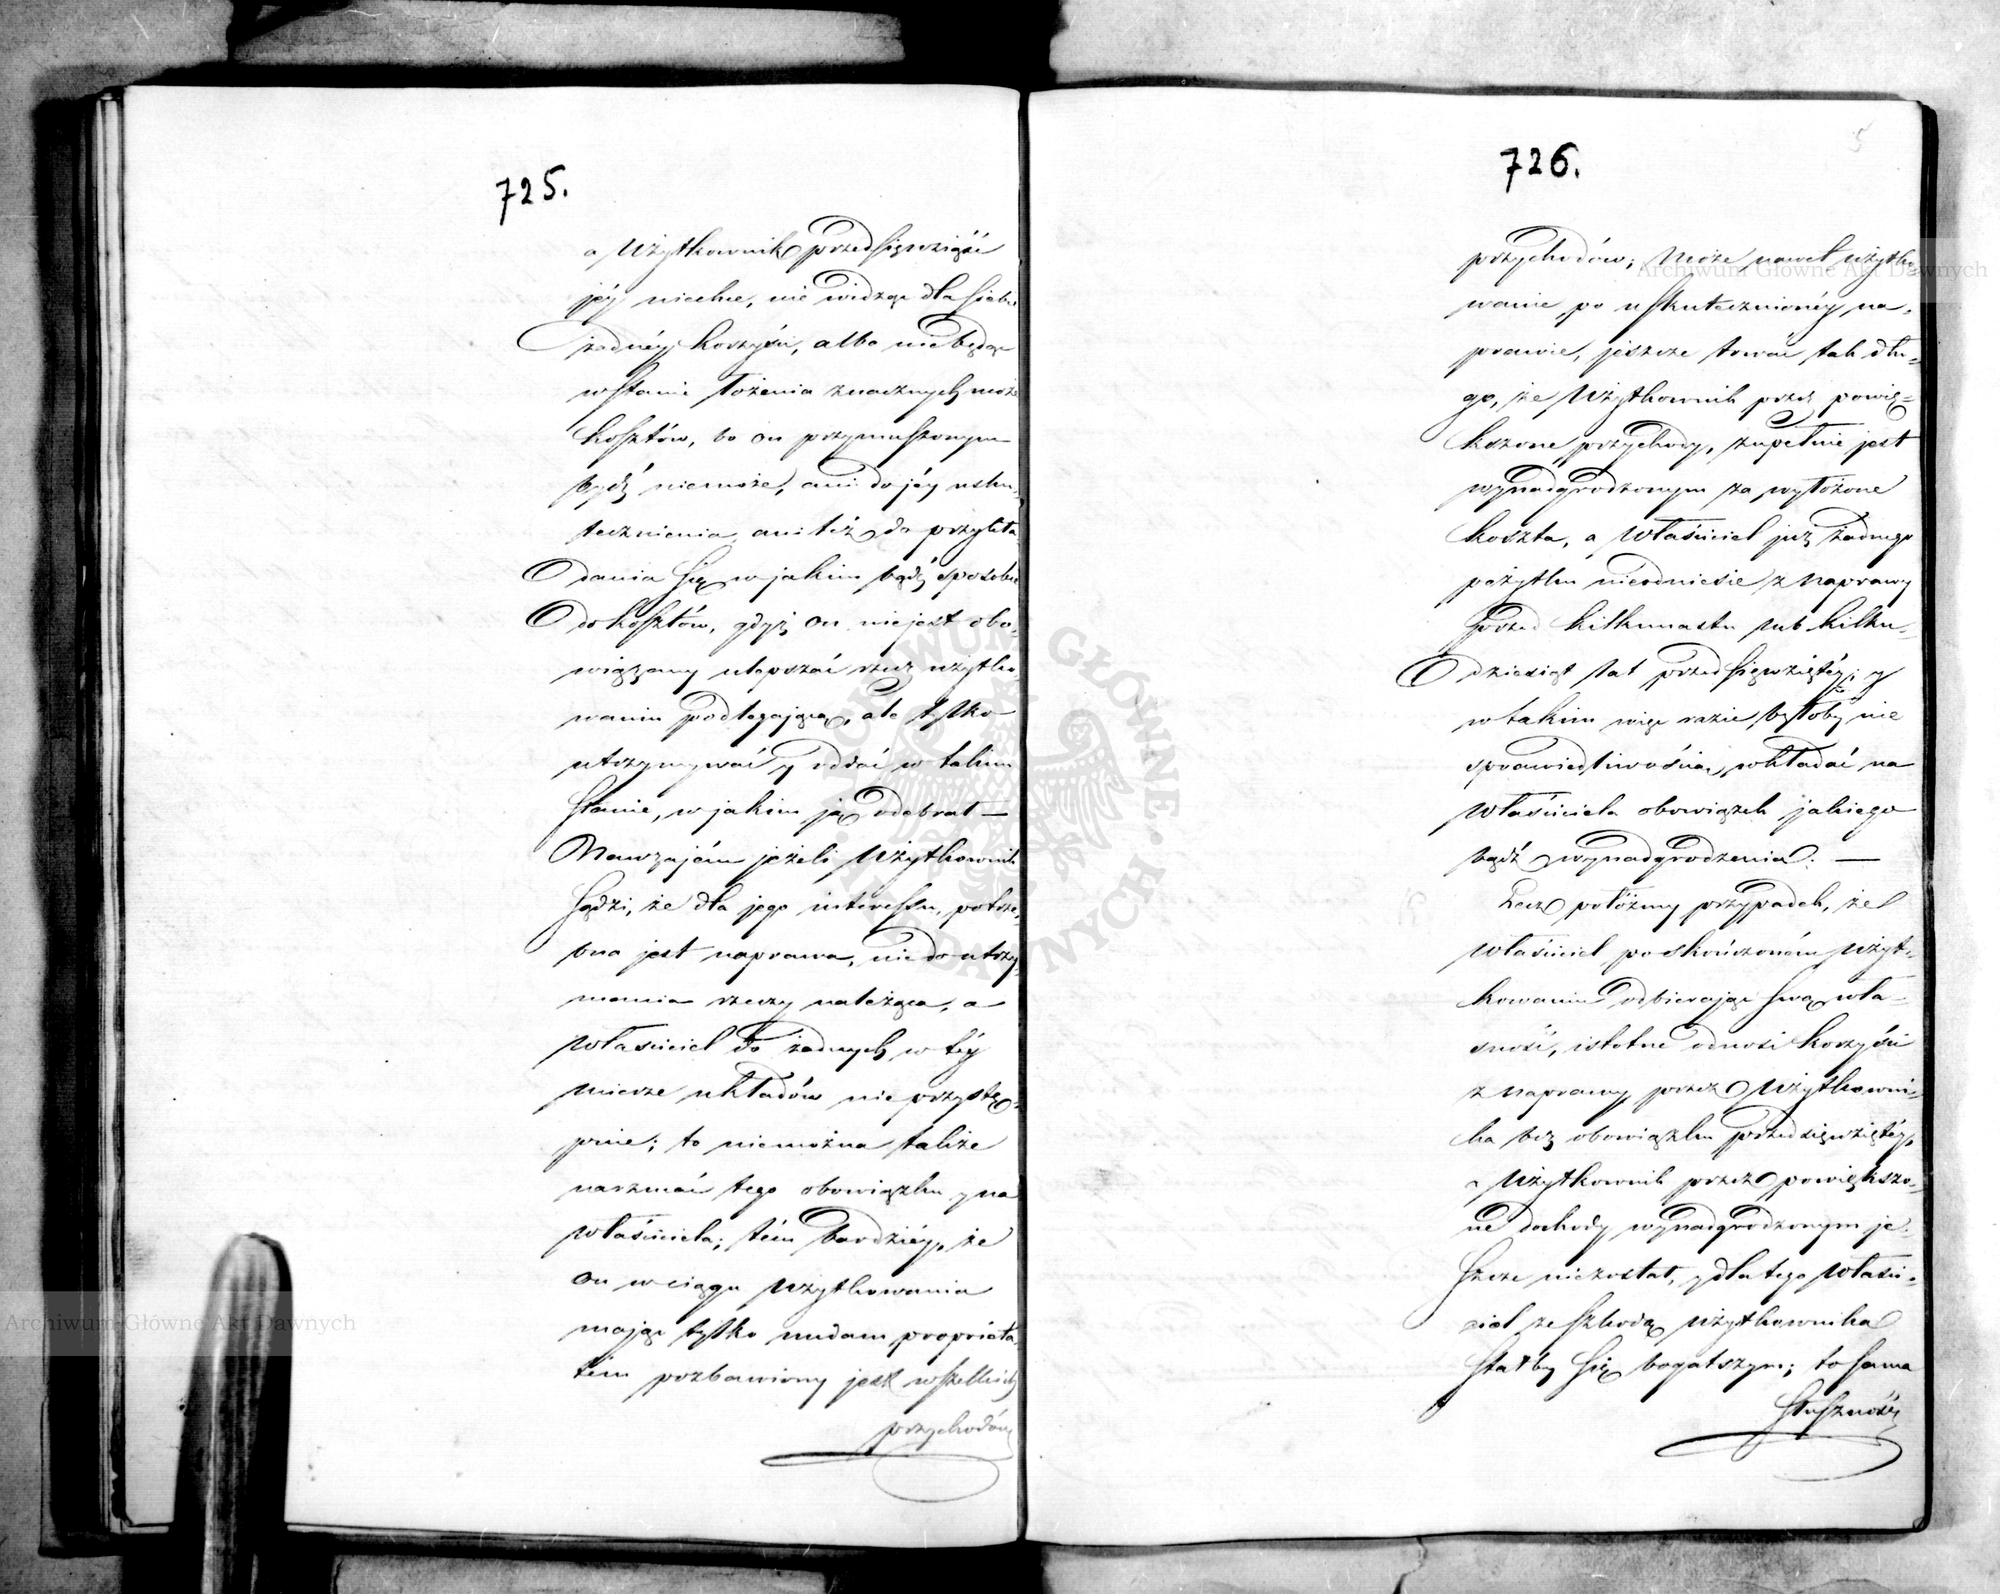 725.
a Użytkownik przedsięwziąść
jéy niechce, nie widząc dla siebie
żadnéy korzyści, albo niebędąc
wstanie łożenia znacznych może
kosztów, to on przymuszonym
bydź niemoże, ani do jéy usku-
tecznienia, ani też do przykła-
dania się w jakim bądź sposobie
do kosztów, gdyż on niejest obo-
wiązany ulepszać rzecz użytko
waniu podlegającą, ale tylko
utrzymywać y oddać w takim
stanie, w jakim ją odebrał —
Nawzajem jeżeli Użytkownik
sądzi, że dla jego interessu, potrze-
bna jest naprawa, nie do utrzy-
mania rzeczy należąca, a
Właściciel do żadnych w téy
mierze układów nie przystę-
pnie; to niemożna także
narzucać tego obowiązku y na
właściciela; tém bardziéy, że
on w ciągu użytkowania
mając tylko nudam proprieta-
tem pozbawiony jest wszelkich
przychodów
726.
przychodów; Może nawet użytko
wanie, po uskutecznionéy na-
prawie, jeszcze trwać tak dłu-
go, że Użytkownik przez powię-
kszone przychody, zupełnie jest
wynadgrodzonym za wyłożone
koszta, a Właściciel już żadnego
pożytku nieodniesie z naprawy
przed kilkunastu lub kilku-
dziesiąt lat przedsięwziętéy; y
w takim więc razie byłoby nie
sprawiedliwością, wkładać na
Właściciela obowiązek jakiego
bądź wynadgrodzenia. —
Lecz połóżmy przypadek, że
Właściciel po skończoném użyt-
kowaniu odbierając swą wła-
sność, istotne odnosi korzyści
z naprawy przez Użytkowni-
ka bez obowiązku przedsięwziętéy,
a Użytkownik przez powiększo-
ne dochody wynadgrodzonym je-
szcze niezostał, y dla tego Właści-
ciel ze szkodą użytkownika
stałby się bogatszym; to sama
słuszność
5
Archiwum Główne Akt Dawnych
Archiwum Główne Akt Dawnych
ARCHIWUM GŁÓWNE AKT DAWNYCH